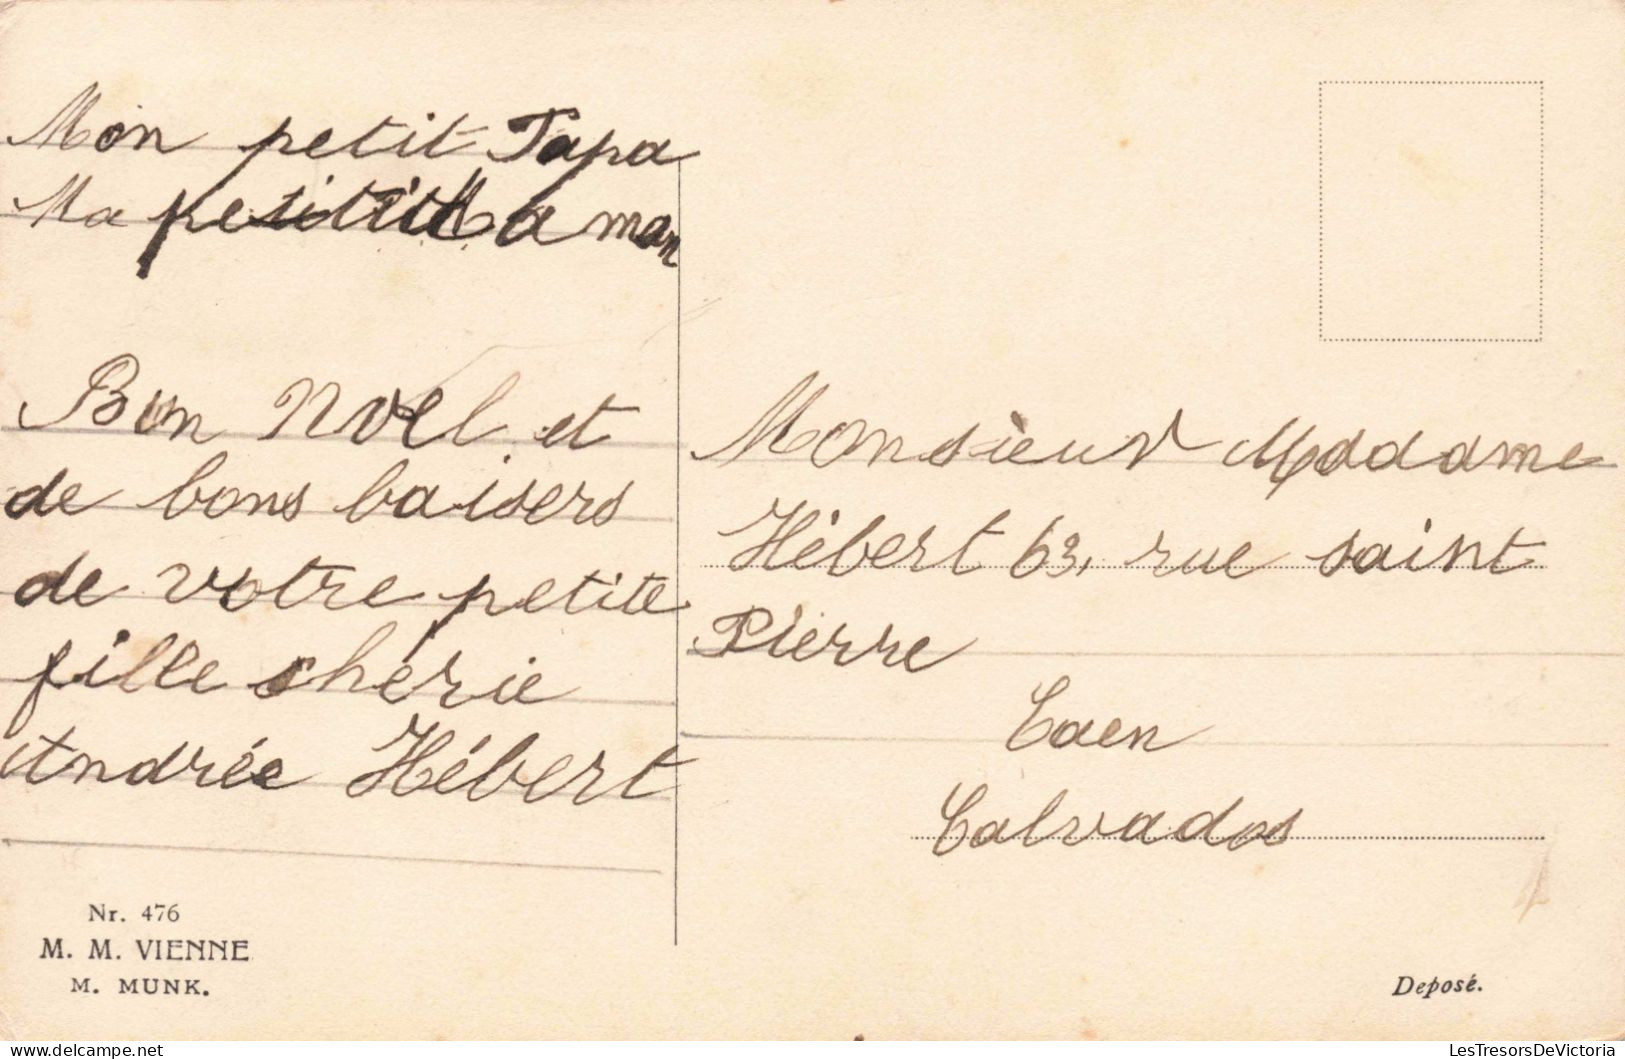 Mon petit Papa
Ma petite Maman
Bon Noel et
de bons baisers
de votre petite
fille chérie
Andrée Hébert
Nr. 476
M. M. VIENNE
M. MUNK.
Monsieur Maddame
Hébert 63, rue saint
Pierre
Caen
Calvados
Deposé.
LesTresorsDeVictoria